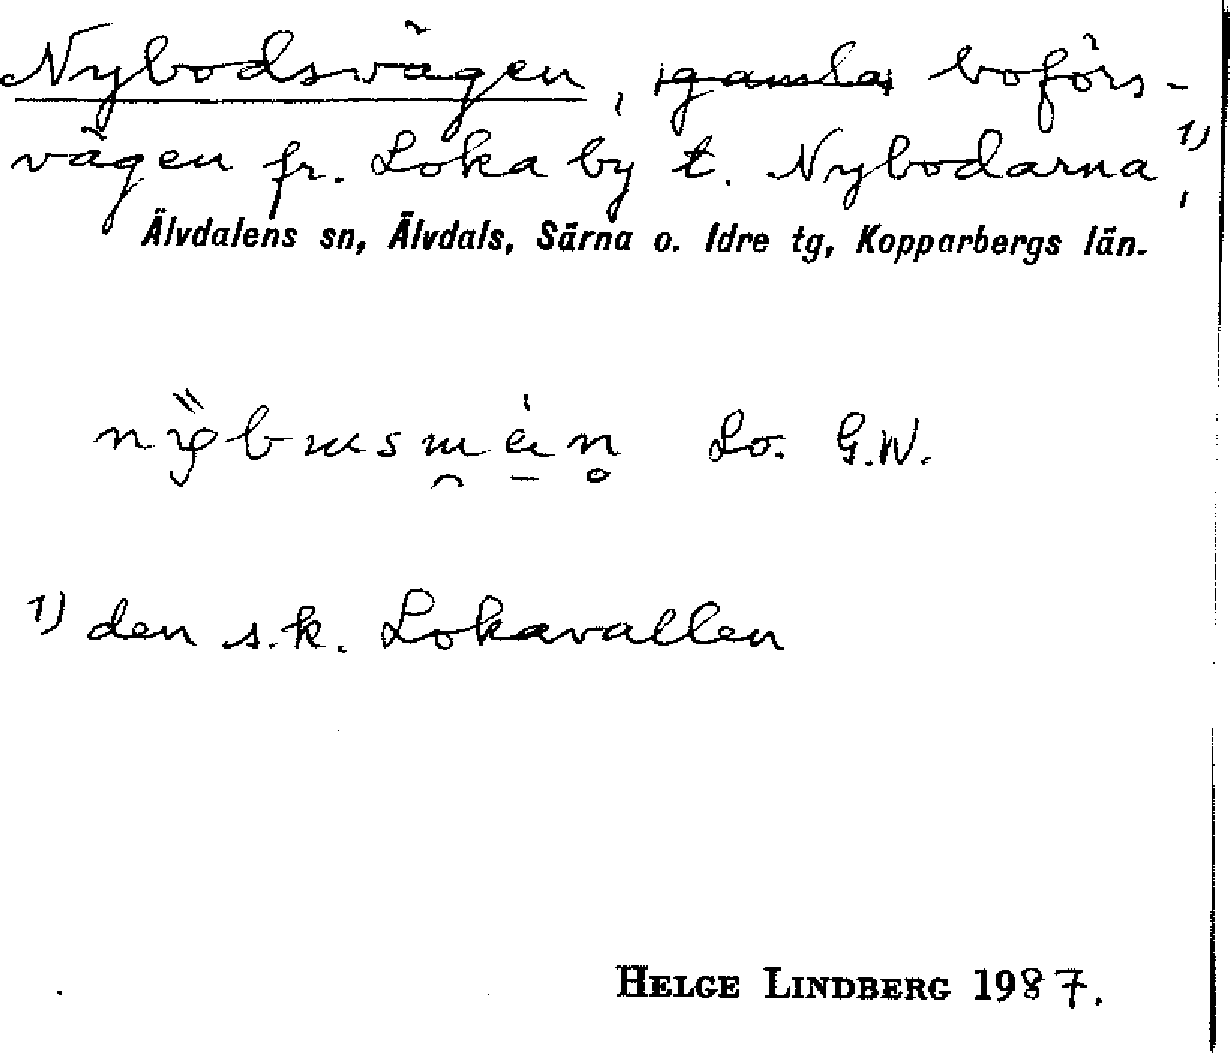 Nybodsvägen, gamla boförs-
vägen fr. Loka by t. Nybodarna 1),
Älvdalens sn, Älvdals, Särna o. Idre tg, Kopparbergs län.
Lo. G.W.
1) den s.k. Lokavallen
HELGE LINDBERG 1987.